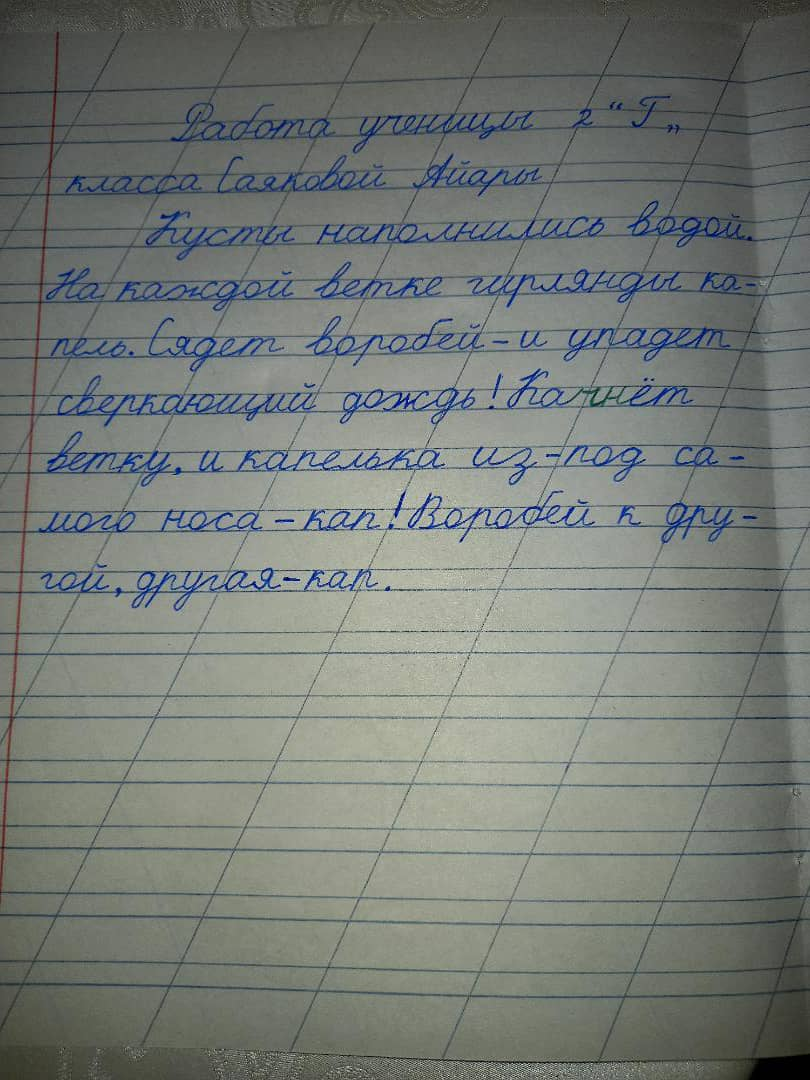 Работа ученицы 2 "Г„
класса Саяковой Айары
Кусты наполнились водой.
На каждой ветке гирлянды ка-
пель. Сядет воробей - и упадет
сверкающий дождь! Качнёт
ветку, и капелька из-под са-
мого носа - кап! Воробей к дру-
гой, другая - кап.